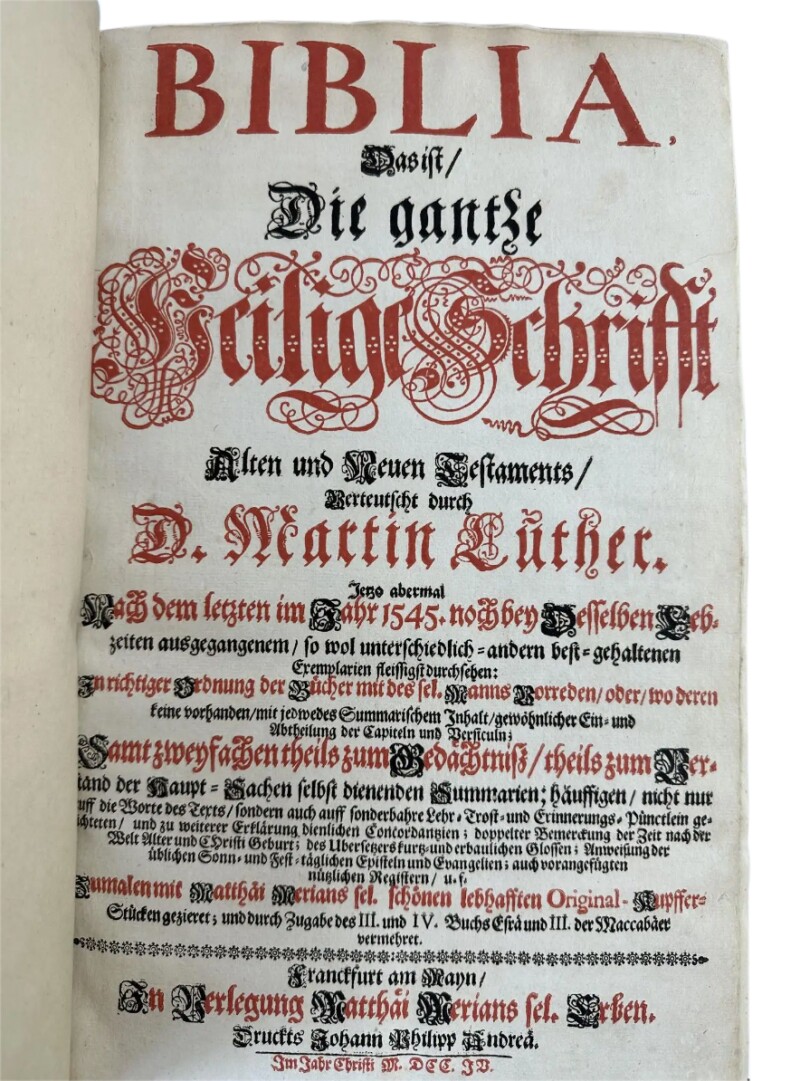 BIBLIA,
Das ist/
Die gantze
Heilige Schrifft
Alten und Neuen Testaments/
Verteutscht durch
D. Martin Luther.
Jetzo abermal
Nach dem letzten im Jahr 1545. noch bey Desselben Leb-
zeiten ausgegangenem/ so wol unterschiedlich-andern best-gehaltenen
Exemplarien fleissigst durchsehen:
In richtiger Ordnung der Bücher mit des sel. Manns Vorreden/ oder/ wo deren
keine vorhanden/ mit jedwedes Summarischem Inhalt/ gewöhnlicher Ein- und
Abtheilung der Capiteln und Versiculn;
Samt zweyfachen theils zum Gedächtniß/ theils zum Ver-
stand der Haupt-Sachen selbst dienenden Summarien; häuffigen/ nicht nur
auff die Worte des Texts/ sondern auch auff sonderbahre Lehr-Trost-und Erinnerungs-Pünctlein ge-
ichteten/ und zu weiterer Erklärung dienlichen Concordantzien; doppelter Bemerckung der Zeit nach der
Welt Alter und Christi Geburt; des Ubersetzers kurtz-und erbaulichen Glossen; Anweisung der
üblichen Sonn-und Fest-täglichen Episteln und Evangelien; auch vorangefügten
nützlichen Registern/ u.s.f.
Zumalen mit Matthäi Merians sel. schönen lebhafften Original-Kupffer-
Stücken gezieret; und durch Zugabe des III. und IV. Buchs Esrä und III. der Maccabäer
vermehret.
Franckfurt am Mayn/
In Verlegung Matthäi Merians sel. Erben.
Druckts Johann Philipp Andreä.
Im Jahr Christi M. DCC. IV.